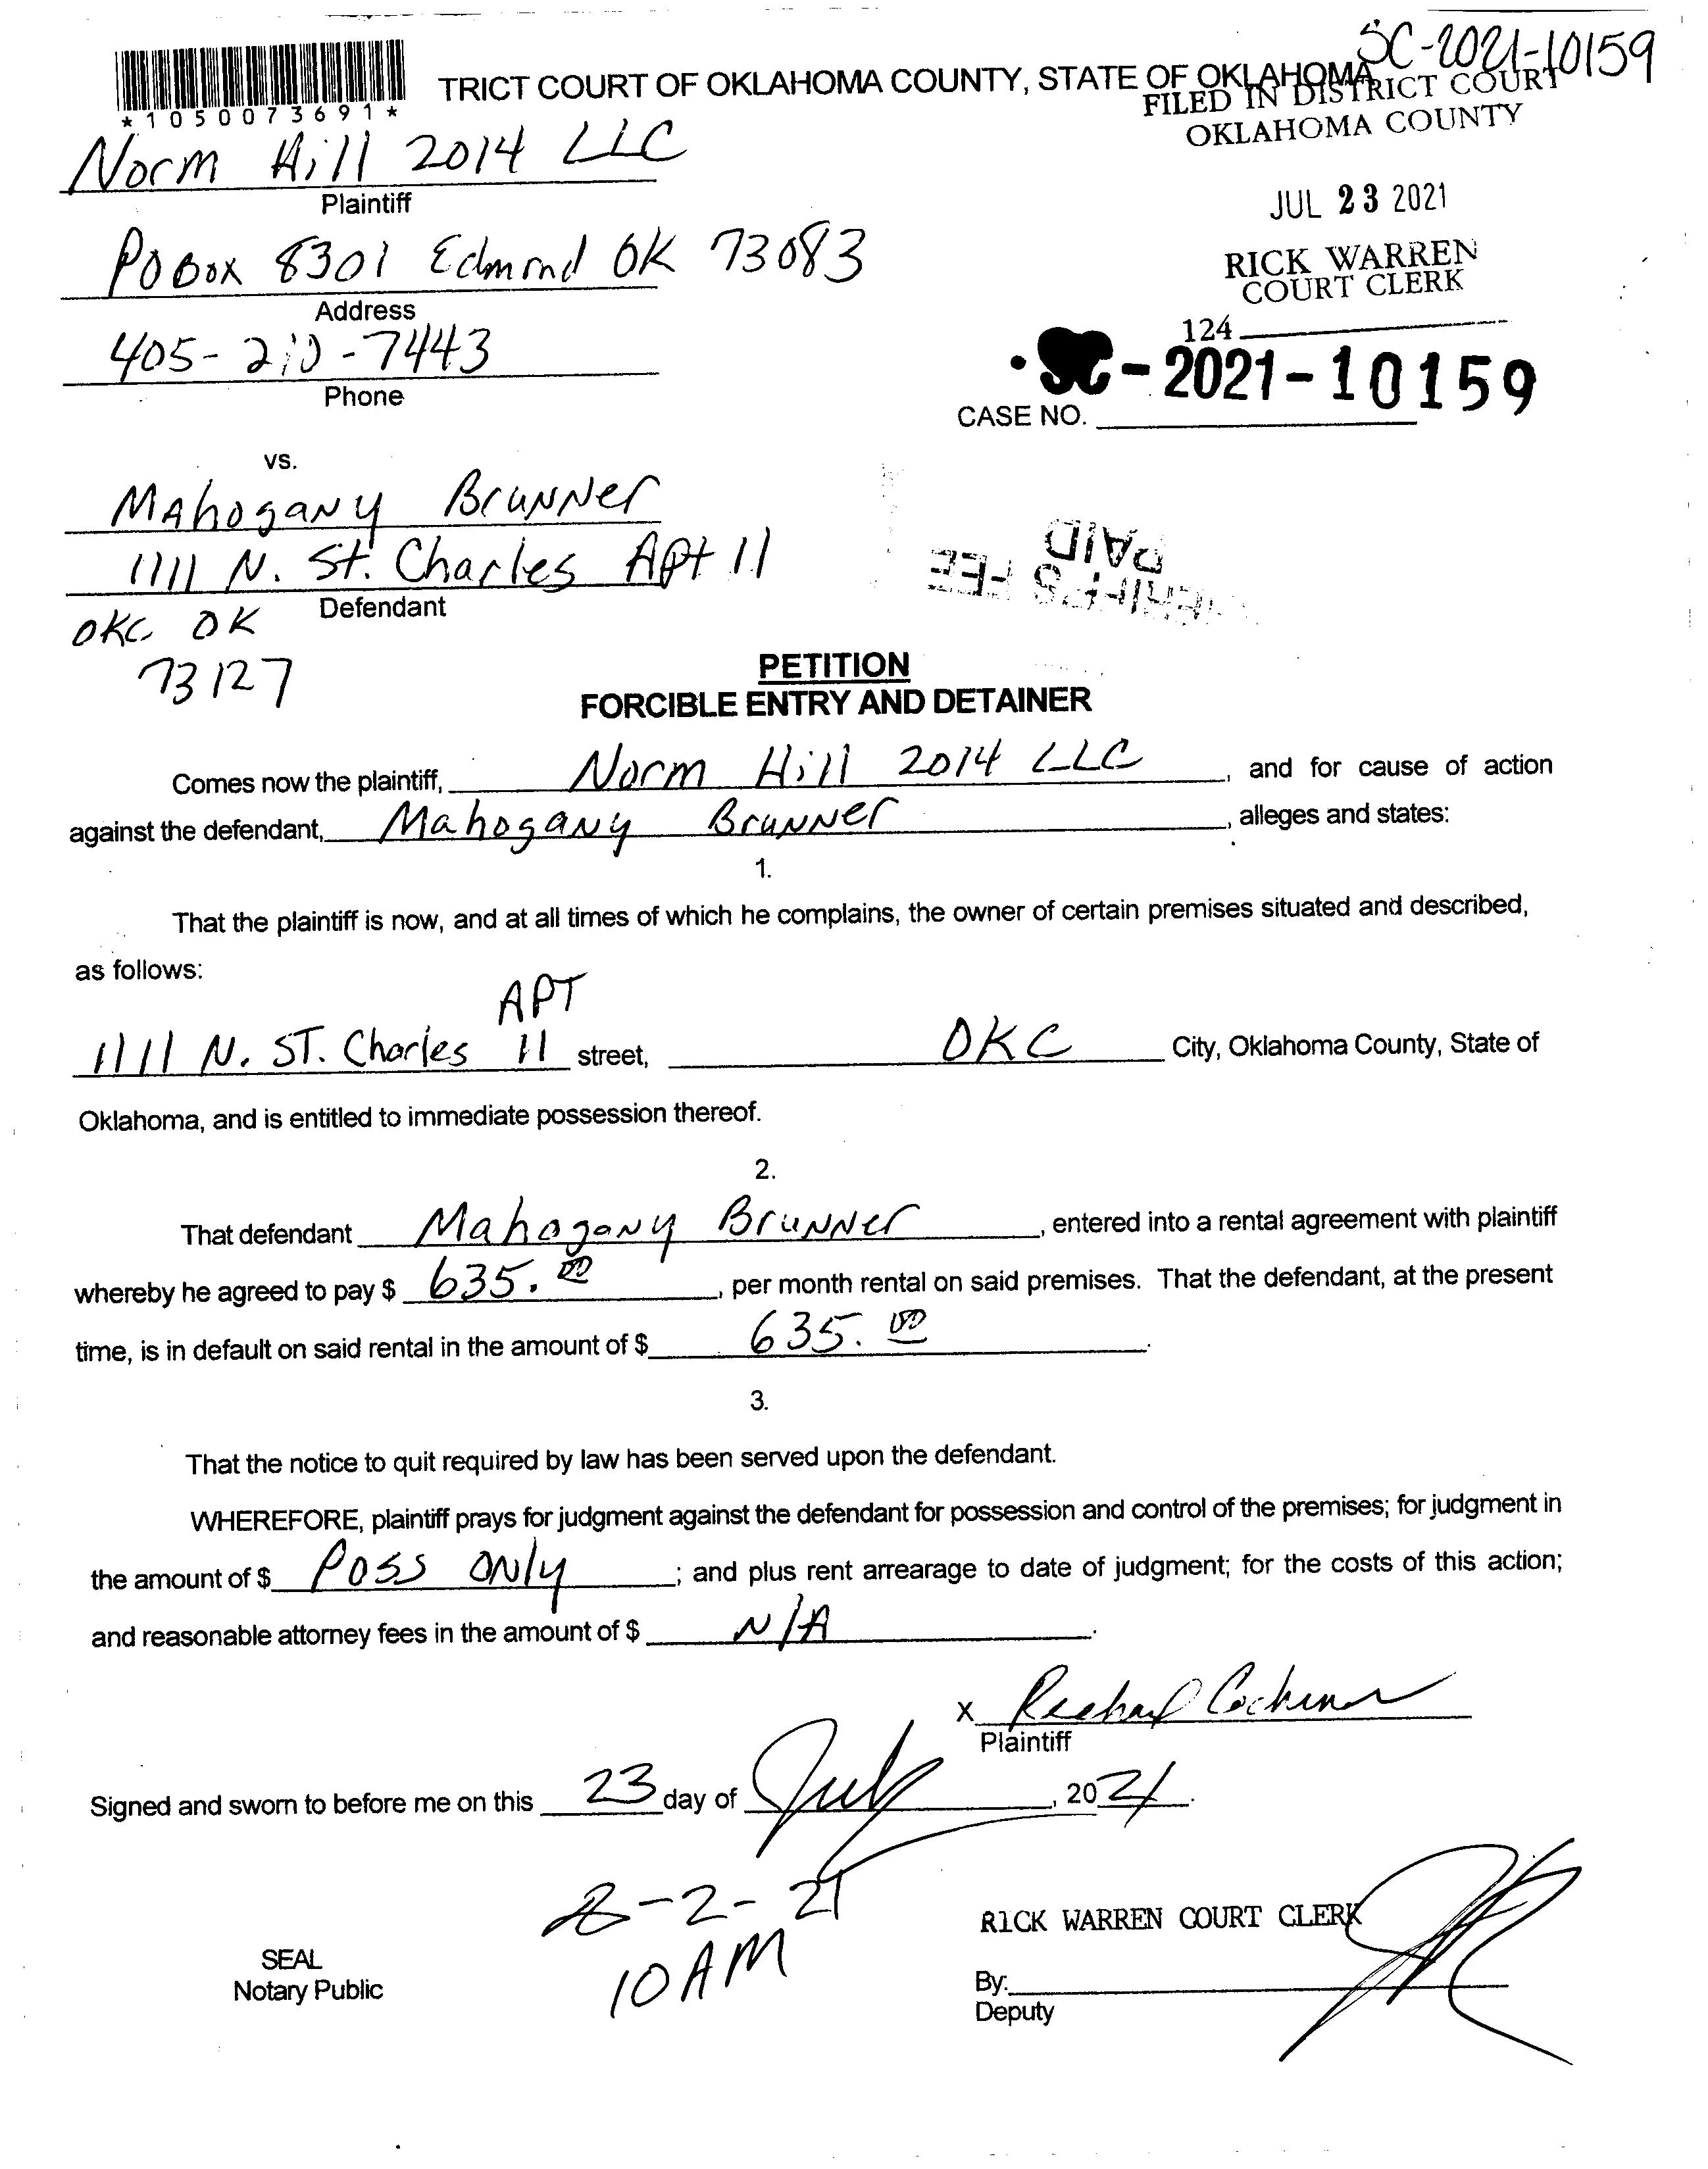 SC-2021-10159
TRICT COURT OF OKLAHOMA COUNTY, STATE OF OKLAHOMA
FILED IN DISTRICT COURT
OKLAHOMA COUNTY
*1050073691*
Norm Hill 2014 LLC
Plaintiff
JUL 23 2021
PO Box 8301 Edmond OK 73083
Address
RICK WARREN
COURT CLERK
405-210-7443
Phone
124
SC-2021-10159
CASE NO.
vs.
Mahogany Brunner
1111 N. St. Charles Apt 11
Defendant
OKC OK
73127
SHERIFF'S FEE
PAID
PETITION
FORCIBLE ENTRY AND DETAINER
Comes now the plaintiff, Norm Hill 2014 LLC, and for cause of action
against the defendant, Mahogany Brunner, alleges and states:
1.
That the plaintiff is now, and at all times of which he complains, the owner of certain premises situated and described,
as follows:
APT
1111 N. ST. Charles 11 street, OKC City, Oklahoma County, State of
Oklahoma, and is entitled to immediate possession thereof.
2.
That defendant Mahogany Brunner, entered into a rental agreement with plaintiff
whereby he agreed to pay $ 635.00, per month rental on said premises. That the defendant, at the present
time, is in default on said rental in the amount of $ 635.00.
3.
That the notice to quit required by law has been served upon the defendant.
WHEREFORE, plaintiff prays for judgment against the defendant for possession and control of the premises; for judgment in
the amount of $ Poss Only; and plus rent arrearage to date of judgment; for the costs of this action;
and reasonable attorney fees in the amount of $ N/A.
X
Plaintiff
Signed and sworn to before me on this 23 day of July, 2021.
8-2-21
10 AM
RICK WARREN COURT CLERK
SEAL
Notary Public
By:
Deputy